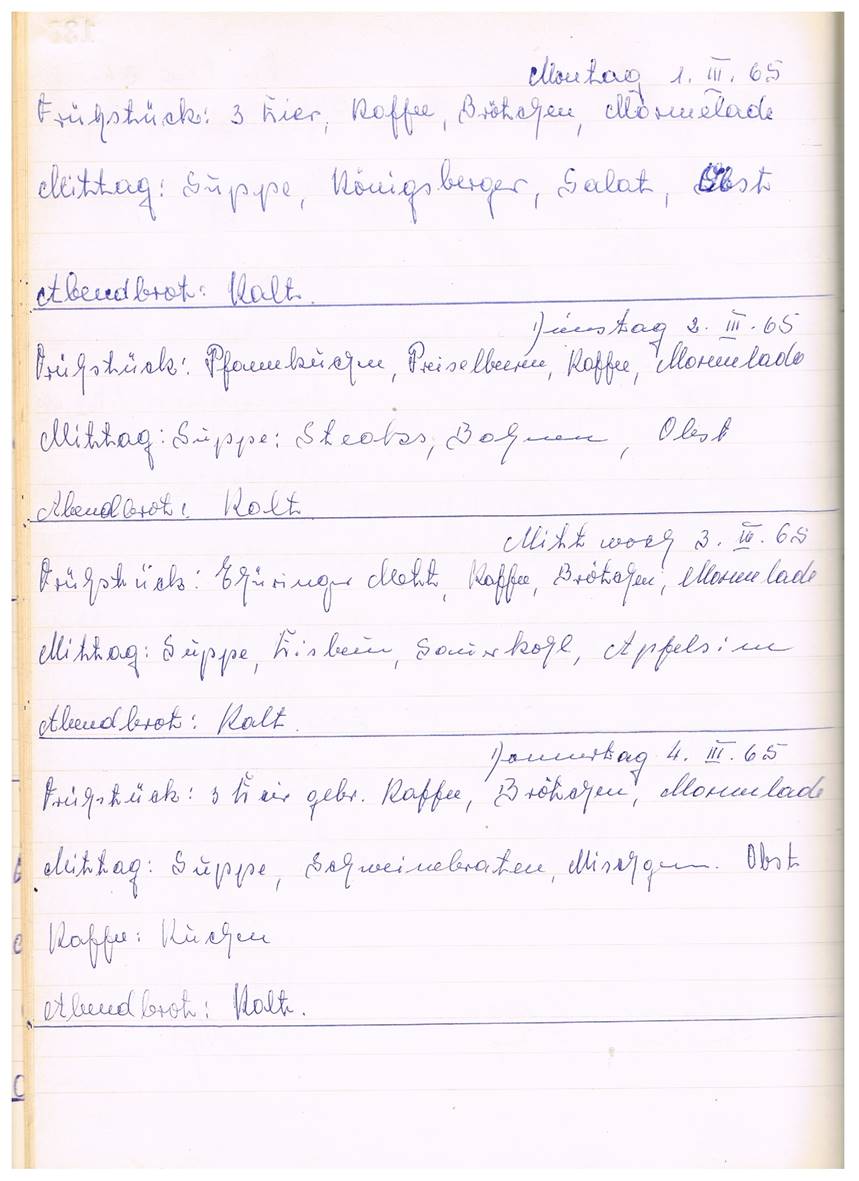 Montag 1. III. 65
Frühstück: 3 Eier, Kaffee, Brötchen, Marmelade
Mittag: Suppe, Königsberger, Salat, Obst
Abendbrot: Kalt.
Dienstag 2. III. 65
Frühstück: Pfannkuchen, Preiselbeeren, Kaffee, Marmelade
Mittag: Suppe: Steaks, Bohnen, Obst
Abendbrot: Kalt
Mittwoch 3. III. 65
Frühstück: Thüringer Mett, Kaffee, Brötchen, Marmelade
Mittag: Suppe, Eisbein, Sauerkohl, Apfelsine
Abendbrot: Kalt.
Donnertag 4. III. 65
Frühstück: 3 Eier gebr. Kaffee, Brötchen, Marmelade
Mittag: Suppe, Schweinebraten, Mischgem. Obst
Kaffee: Kuchen
Abendbrot: Kalt.